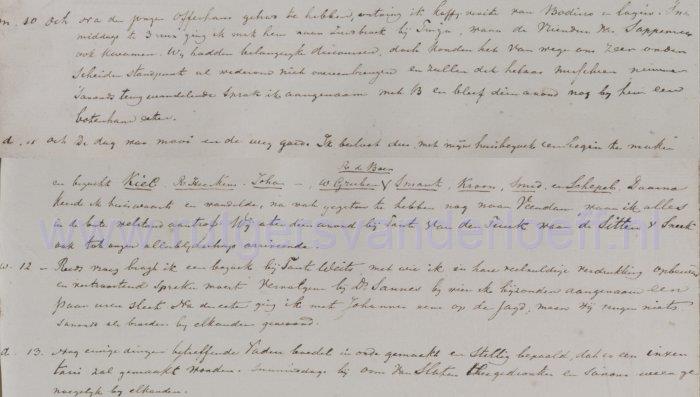 m. 10 Och na de jonge Offerhaus gehoord te hebben, ontving ik koffy visite van Bodino en Lagers. 's na
middags te 3 uur ging ik met hem naar bij waar de Vrienden Sappemeer
ook kwamen. Wij hadden belangryke discoursen, doch konden het van wege ons zeer onder
scheiden standpunt al wederom niet overeenbrengen en zullen dit helaas misschien nimmer
's avonds terug wandelende sprak ik aangenaam met B en bleef dien avond nog by hem een
boterham eten.
d. 11 Och De dag was mooi en de weg goed. Ik besloot dus met mijn huisbezoek een begin te maken
R. de Boer
en bezocht Kiel. R. Heerkens. Johan -, W. Gruben & Smant, Kroon, Smid, en Schepel, Daarna
keerd ik huiswaart en wandelde, na wat gegeten te hebben nog naar Veendam waar ik alles
in de beste welstand aantrof. Wij aten dien avond bij Tant van der Tuuk waar de Sitter & Sneek
ook tot onzer aller blijdschap arriveerde.
www.rutgersvanderloeff.nl
w. 12 - Reeds vroeg bragt ik een bezoek bij Tante Weits, met wie ik in hare verhuldige verdrukking opbeurend
en vertroostend spreken mogt. Vervolgens bij Dr. Sannes bij wien ik bijzonder aangenaam een
paar uren sleet. Na de eten ging ik met Johannes eens op de Jagt, maar wij vingen niets.
's avonds als broeders bij elkander gewoond.
d. 13. Nog eenige dingen betreffende Vaders boedel in orde gemaakt en stellig bepaald, dat er een inven
taris zal gemaakt worden. 's namiddags bij oom van Sloten thee gedronken en 's avonds weer ge
noegelijk bij elkander.